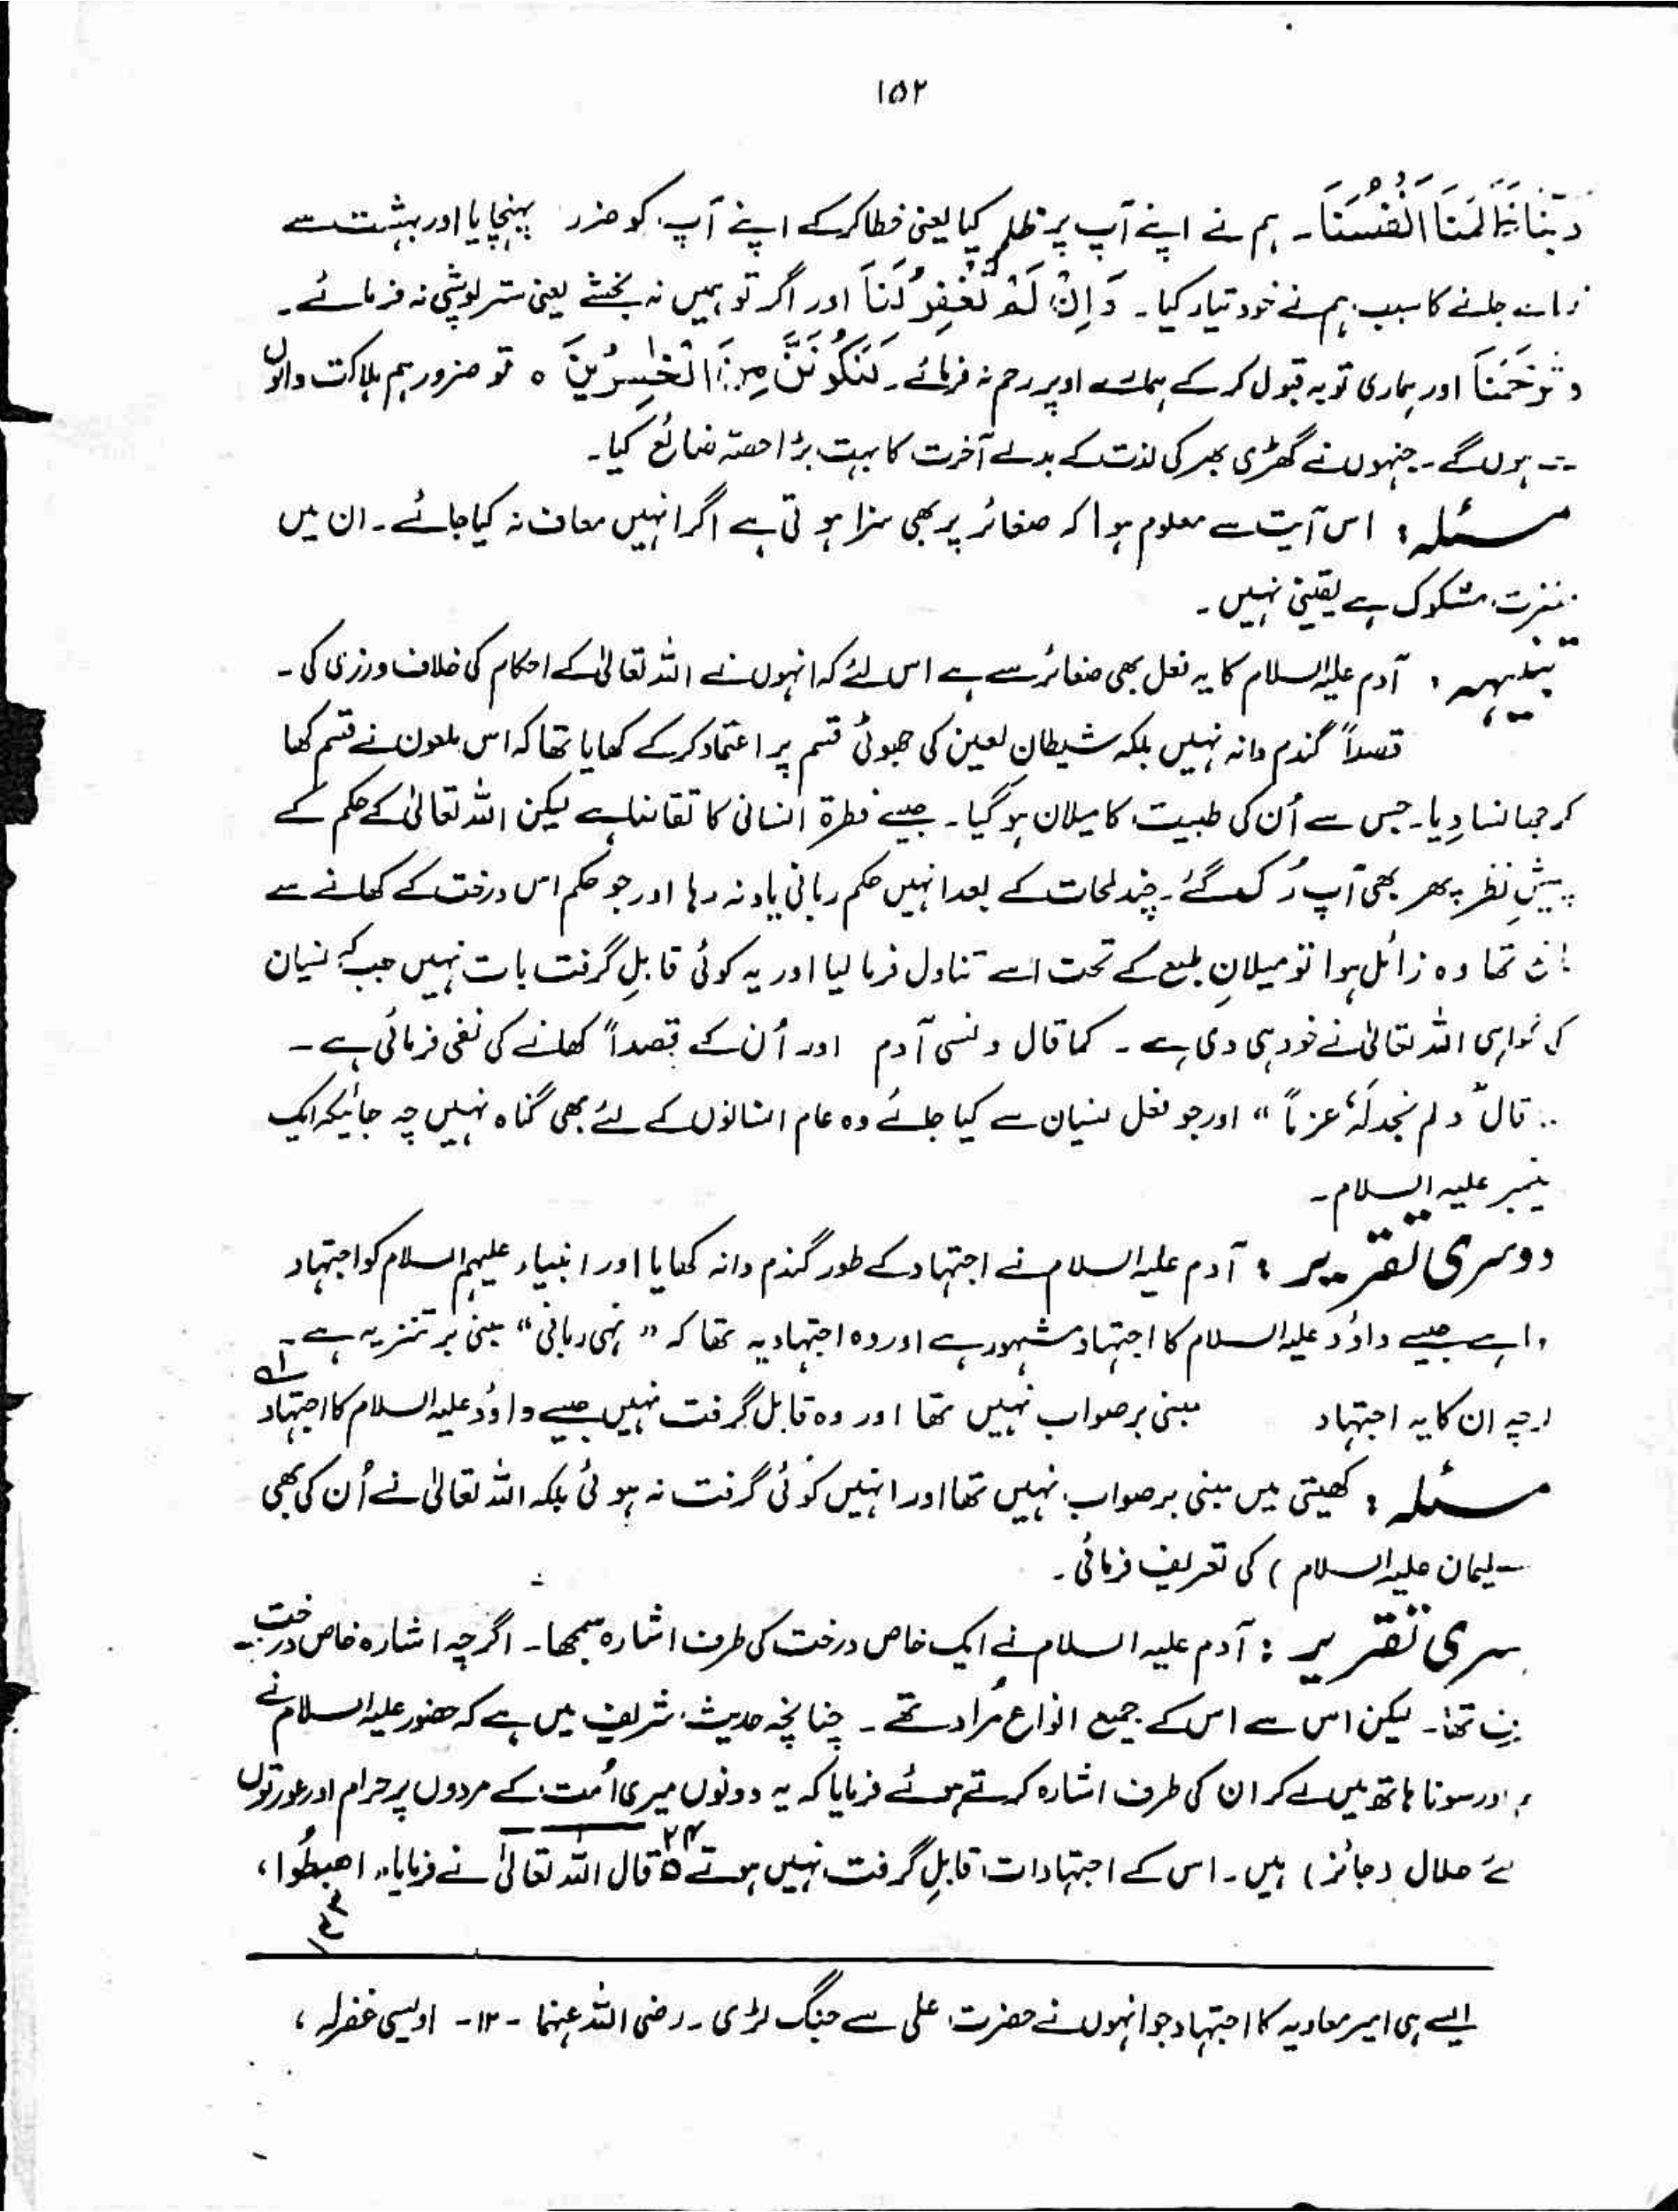 ۱۵۲
رَبَّنَا ظَلَمْنَا اَنْفُسَنَا۔ ہم نے اپنے آپ پر ظلم کیا یعنی خطا کرکے اپنے آپ کو ضرر پہنچایا اور بہشت سے
جانے کا سبب ہم نے خود تیار کیا۔ وَاِنْ لَّمْ تَغْفِرْ لَنَا اور اگر تو ہمیں نہ بخشے یعنی ستر پوشی نہ فرمائے۔
وَتَرْحَمْنَا اور ہماری توبہ قبول کر کے ہمارے اوپر رحم نہ فرمائے۔ لَنَكُوْنَنَّ مِنَ الْخٰسِرِيْنَ ہ تو ضرور ہم ہلاکت والوں
ہوں گے۔ جنہوں نے گھڑی بھر کی لذت کے بدلے آخرت کا بہت بڑا حصہ ضائع کیا۔
مسئلہ : اس آیت سے معلوم ہوا کہ صغائر پر بھی سزا ہوتی ہے اگر انہیں معاف نہ کیا جائے۔ ان میں
مغفرت مشکوک ہے یقینی نہیں۔
تنبیہہ : آدم علیہ السلام کا یہ فعل بھی صغائر سے ہے اس لئے کہ انہوں نے اللہ تعالیٰ کے احکام کی خلاف ورزی کی۔
قصداً گندم دانہ نہیں بلکہ شیطان لعین کی جھوٹی قسم پر اعتماد کرکے کھایا تھا کہ اس ملعون نے قسم کھا
کر جھانسا دیا۔ جس سے اُن کی طبیت کا میلان ہو گیا۔ جیسے فطرۃ انسانی کا تقاضا ہے لیکن اللہ تعالیٰ کے حکم کے
پیشِ نظر پھر بھی آپ رُک گئے۔ چند لمحات کے بعد انہیں حکم ربانی یاد نہ رہا اور جو حکم اس درخت کے کھانے سے
تھا وہ زائل ہوا تو میلانِ طبع کے تحت اسے تناول فرما لیا اور یہ کوئی قابلِ گرفت بات نہیں جب کہ نسیان
کی گواہی اللہ تعالیٰ نے خود ہی دی ہے۔ کما قال ونسی آدم اور اُن کے قصداً کھانے کی نفی فرمائی ہے۔
قال " ولم نجد لہٗ عزماً " اور جو فعل نسیان سے کیا جائے وہ عام انسانوں کے لئے بھی گناہ نہیں چہ جائیکہ ایک
پیغمبر علیہ السلام۔
دوسری تقریر : آدم علیہ السلام نے اجتہاد کے طور گندم دانہ کھایا اور انبیاء علیہم السلام کو اجتہاد
جیسے داؤد علیہ السلام کا اجتہاد مشہور ہے اور وہ اجتہاد یہ تھا کہ " نہی ربانی " مبنی بر تنزیہ ہے۔
ان کا یہ اجتہاد مبنی بر صواب نہیں تھا اور وہ قابل گرفت نہیں جیسے داؤد علیہ السلام کا اجتہاد
مسئلہ : کھیتی میں مبنی بر صواب نہیں تھا اور انہیں کوئی گرفت نہ ہوئی بلکہ اللہ تعالیٰ نے اُن کی بھی
سلیمان علیہ السلام ) کی تعریف فرمائی۔
سری تقریر : آدم علیہ السلام نے ایک خاص درخت کی طرف اشارہ سمجھا۔ اگرچہ اشارہ خاص درخت
تھا۔ لیکن اس سے اس کے جمیع انواع مُراد تھے۔ چنانچہ حدیث شریف میں ہے کہ حضور علیہ السلام نے
اور سونا ہاتھ میں لے کر ان کی طرف اشارہ کرتے ہوئے فرمایا کہ یہ دونوں میری اُمت کے مردوں پر حرام اور عورتوں
حلال (جائز) ہیں۔ اس کے اجتہادات قابلِ گرفت نہیں ہوتے ۲۴ قال اللہ تعالیٰ نے فرمایا، اھبطُوا،
ایسے ہی امیر معاویہ کا اجتہاد جو انہوں نے حضرت علی سے جنگ لڑی۔ رضی اللہ عنہما ۔ ۱۲ ۔ اویسی غفرلہ،